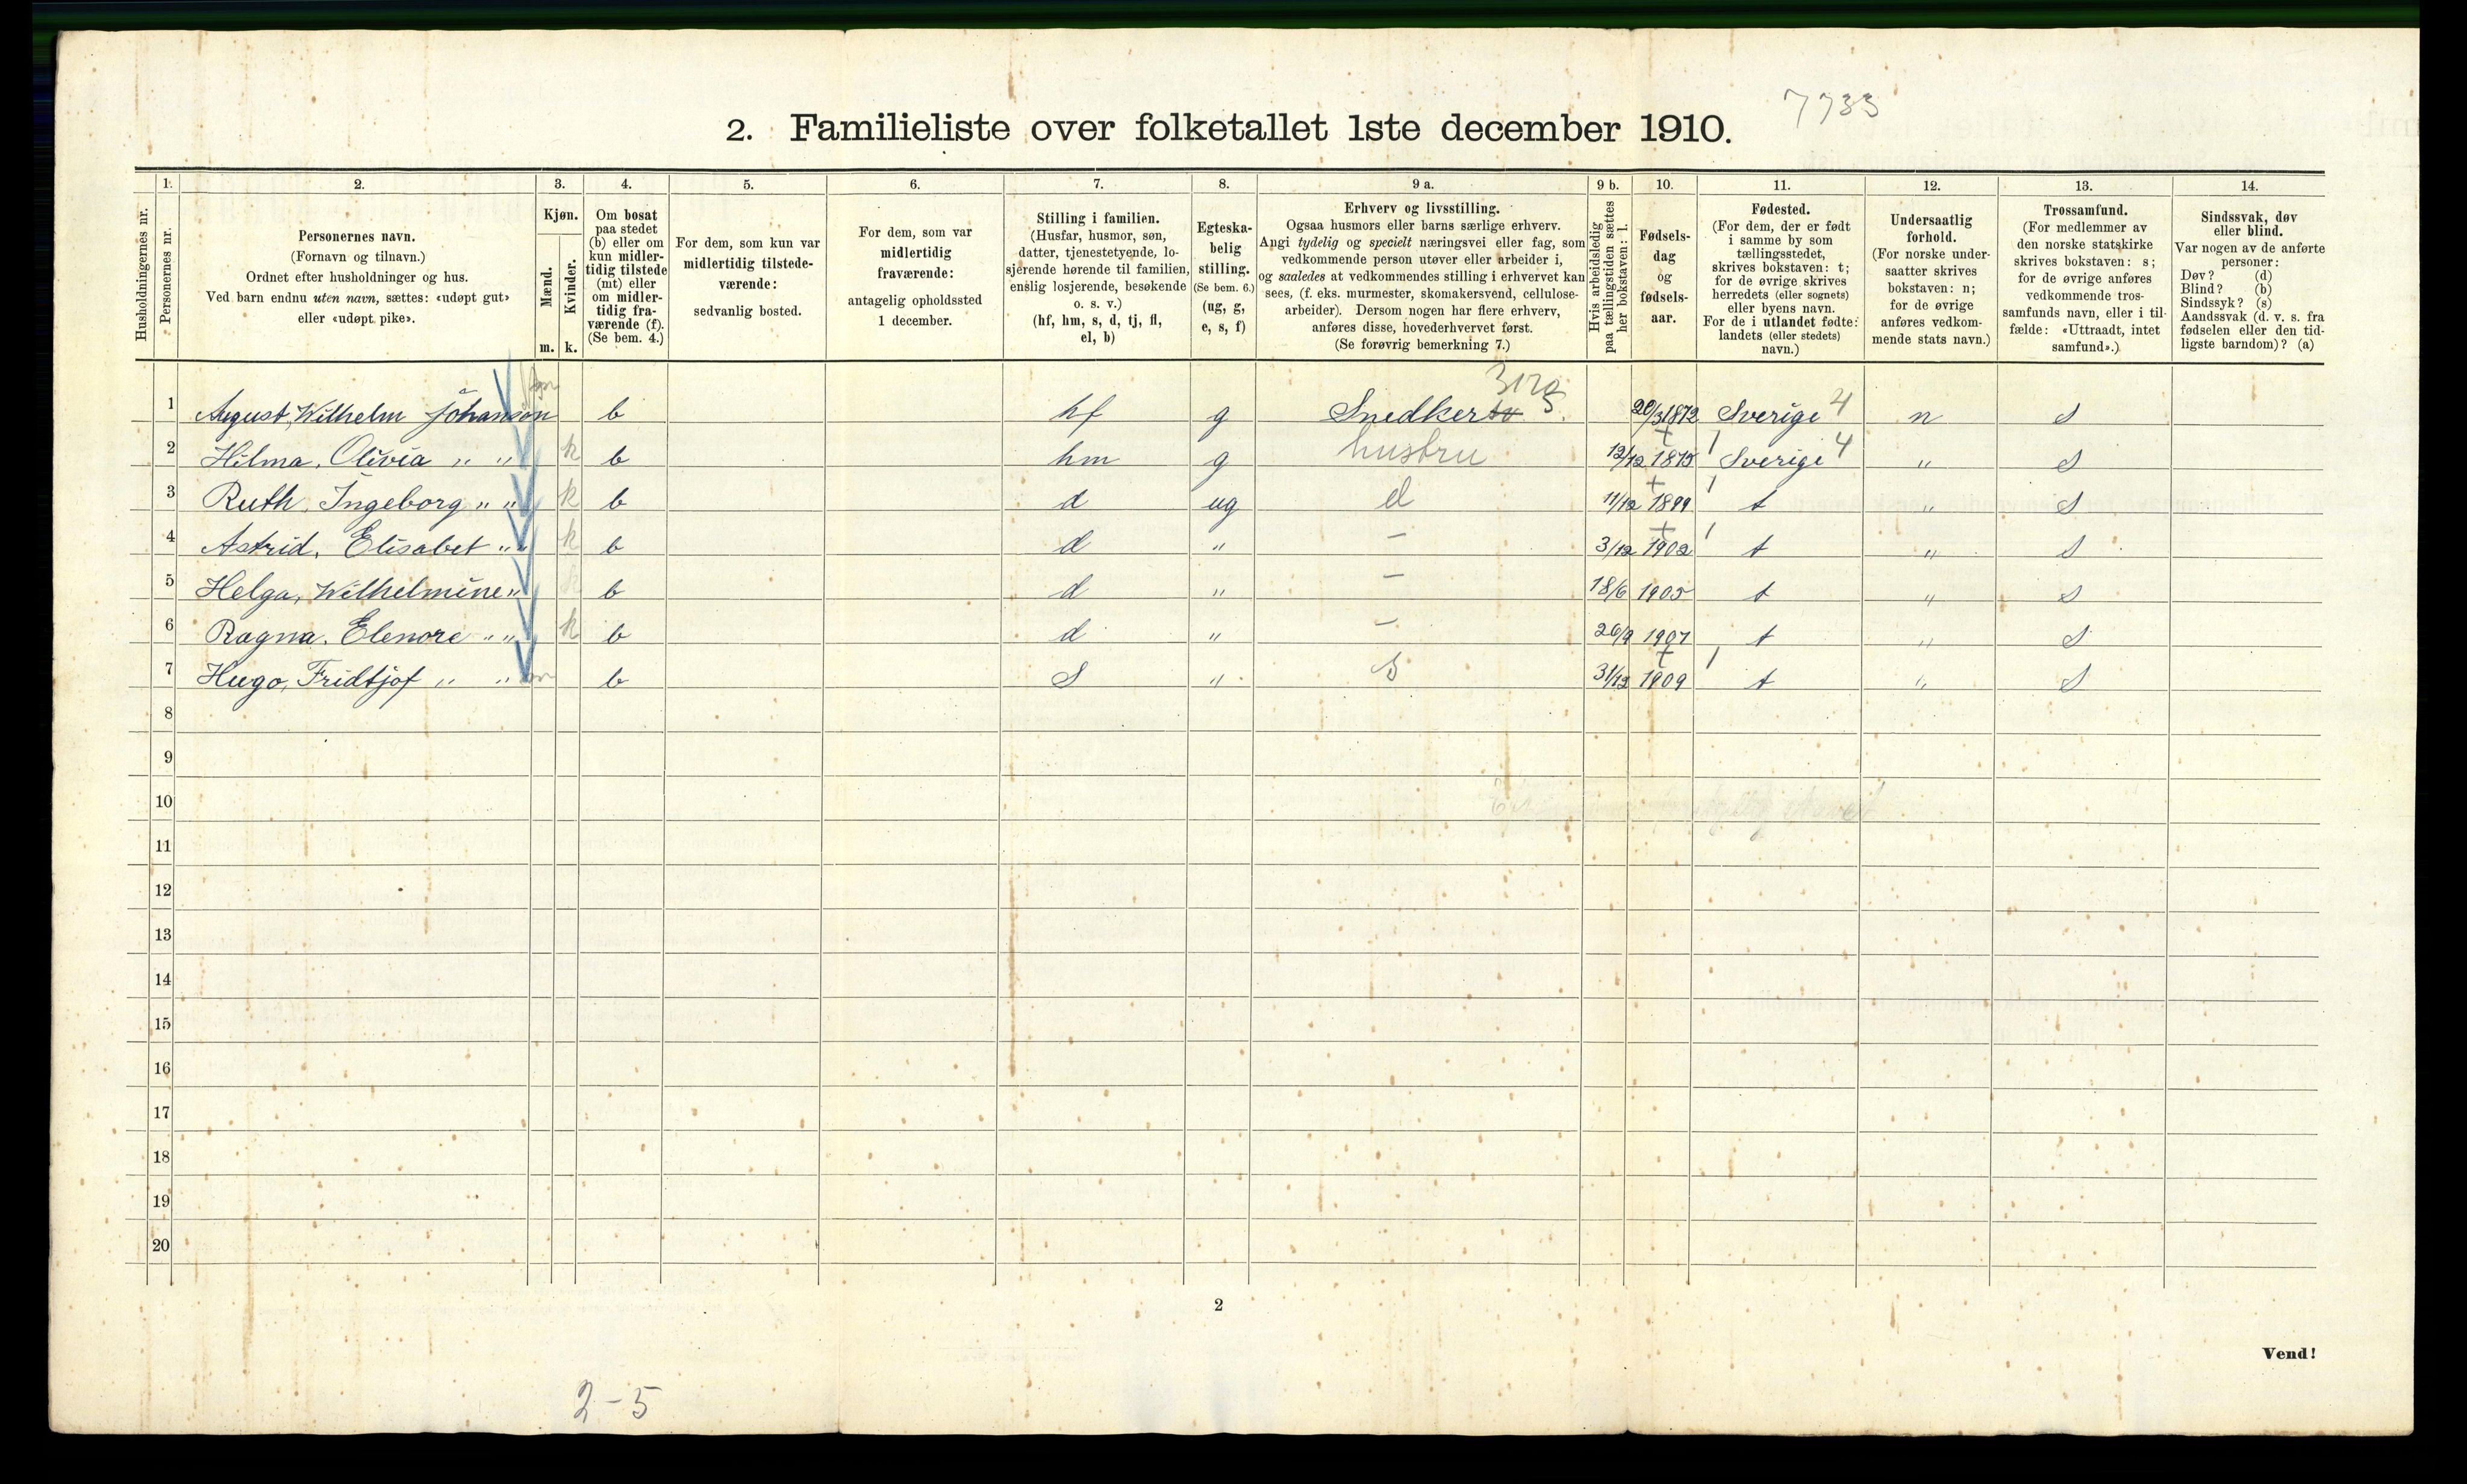 7733
2. Familieliste over folketallet 1ste december 1910.
1. 2. 3. 4. 5. 6. 7. 8. 9 a. 9 b. 10. 11. 12. 13. 14.
Husholdningernes nr.
Personernes nr.
Personernes navn.
(Fornavn og tilnavn.)
Ordnet efter husholdninger og hus.
Ved barn endnu uten navn, sættes: «udøpt gut»
eller «udøpt pike».
Kjøn.
Mænd.
Kvinder.
m. k.
Om bosat
paa stedet
(b) eller om
kun midler-
tidig tilstede
(mt) eller
om midler-
tidig fra-
værende (f).
(Se bem. 4.)
For dem, som kun var
midlertidig tilstede-
værende:
sedvanlig bosted.
For dem, som var
midlertidig
fraværende:
antagelig opholdssted
1 december.
Stilling i familien.
(Husfar, husmor, søn,
datter, tjenestetyende, lo-
sjerende hørende til familien,
enslig losjerende, besøkende
o. s. v.)
(hf, hm, s, d, tj, fl,
el, b)
Egteska-
belig
stilling.
(Se bem. 6.)
(ug, g,
e, s, f)
Erhverv og livsstilling.
Ogsaa husmors eller barns særlige erhverv.
Angi tydelig og specielt næringsvei eller fag, som
vedkommende person utøver eller arbeider i,
og saaledes at vedkommendes stilling i erhvervet kan
sees, (f. eks. murmester, skomakersvend, cellulose-
arbeider). Dersom nogen har flere erhverv,
anføres disse, hovederhvervet først.
(Se forøvrig bemerkning 7.)
Hvis arbeidsledig
paa tællingstiden sættes
her bokstaven: l.
Fødsels-
dag
og
fødsels-
aar.
Fødested.
(For dem, der er født
i samme by som
tællingsstedet,
skrives bokstaven: t;
for de øvrige skrives
herredets (eller sognets)
eller byens navn.
For de i utlandet fødte:
landets (eller stedets)
navn.)
Undersaatlig
forhold.
(For norske under-
saatter skrives
bokstaven: n;
for de øvrige
anføres vedkom-
mende stats navn.)
Trossamfund.
(For medlemmer av
den norske statskirke
skrives bokstaven: s;
for de øvrige anføres
vedkommende tros-
samfunds navn, eller i til-
fælde: «Uttraadt, intet
samfund».)
Sindssvak, døv
eller blind.
Var nogen av de anførte
personer:
Døv? (d)
Blind? (b)
Sindssyk? (s)
Aandssvak (d. v. s. fra
fødselen eller den tid-
ligste barndom)? (a)
1 August, Wilhelm Johanson m b hf g Snedker S. 20/3 1872 Sverige 4 n s
2 Hilma, Olivia " " k b hm g hustru 12/12 1875 Sverige 4 " s
3 Ruth, Ingeborg " " k b d ug d 11/12 1899 t " s
4 Astrid, Elisabet " " k b d " – 3/12 1902 t " s
5 Helga, Wilhelmine " k b d " – 18/6 1905 t " s
6 Ragna, Elenore " " k b d " – 26/9 1907 t " s
7 Hugo, Fridtjof " " m b s " s 31/12 1909 t " s
8
9
10
11
12
13
14
15
16
17
18
19
20
2
Vend!
2-5